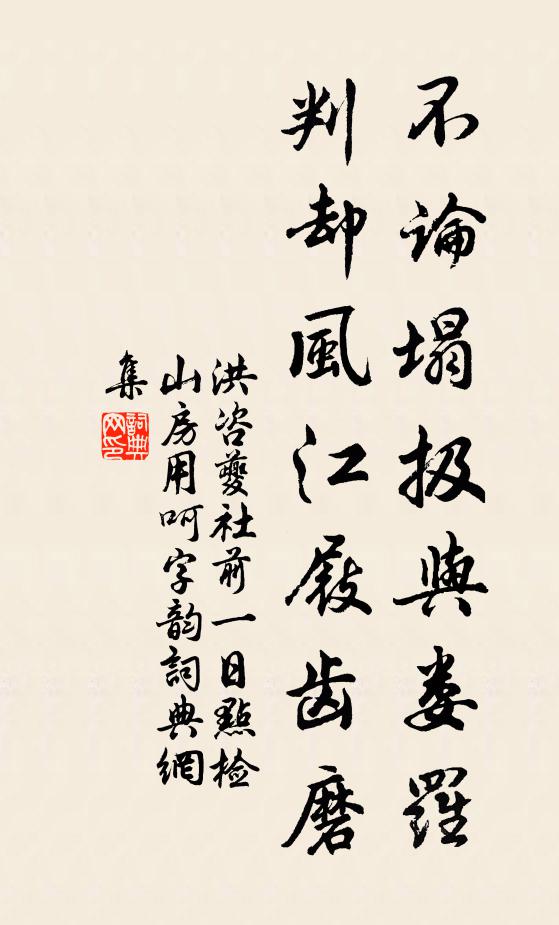 不論塌扱與娄羅
判却風江屐齿磨
洪咨夔社前一日點检
山房用呵字韵詞典網
集
詞典網印